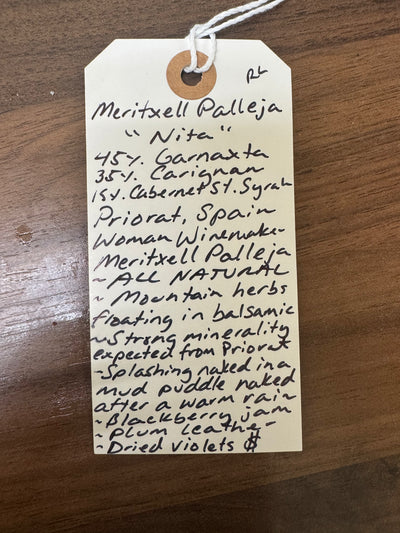 RL
Meritxell Palleja
"Nita"
45%. Garnaxta
35%. Carignan
15%. Cabernet 5%. Syrah
Priorat, Spain
Woman Winemaker
Meritxell Palleja
~ ALL NATURAL
~ Mountain herbs
floating in balsamic
~ Strong minerality
expected from Priorat
~ Splashing naked in a
mud puddle naked
after a warm rain
~ Blackberry jam
~ Plum leather
~ Dried violets $